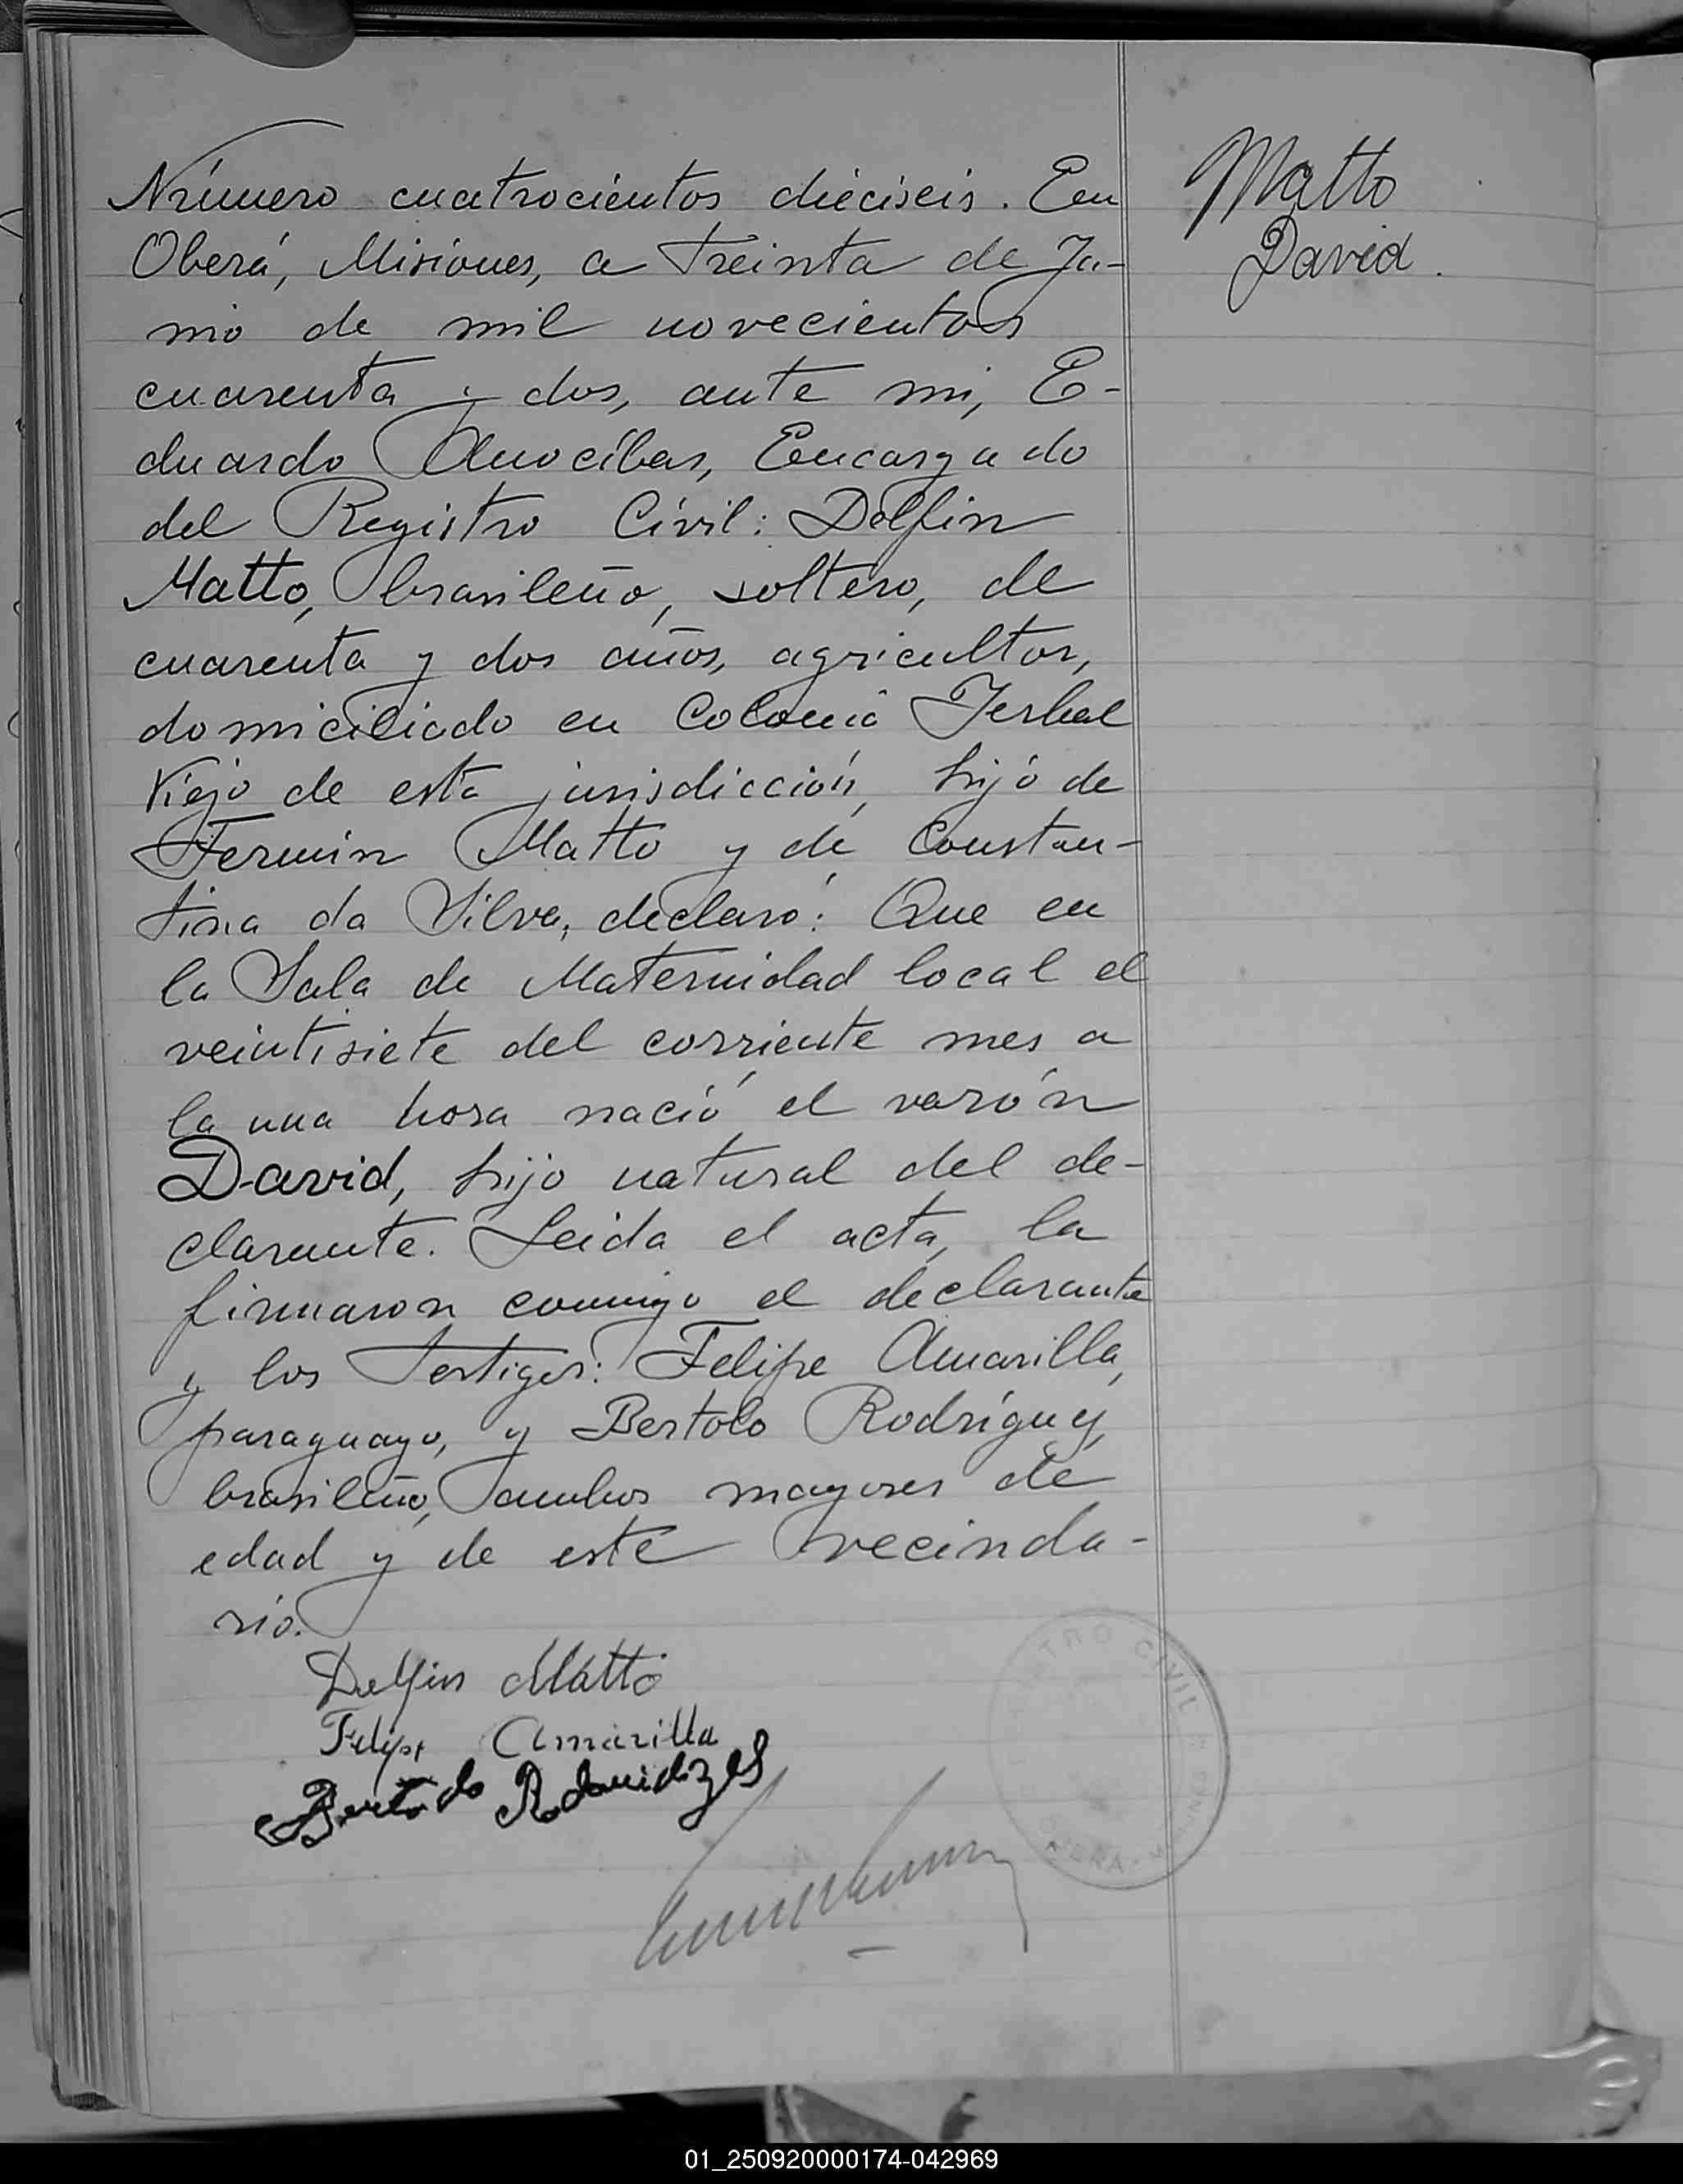 Número cuatrocientos dieciseis. En
Oberá, Misiones, a treinta de Ju-
nio de mil novecientos
cuarenta y dos, ante mi, E-
duardo Anocíbar, Encargado
del Registro Civil: Delfin
Matto, brasileño, soltero, de
cuarenta y dos años, agricultor,
domiciliado en Colonia Yerbal
Viejo de esta jurisdicción, hijo de
Fermín Matto y de Constan-
tina da Silva, declaró: Que en
la Sala de Maternidad local el
veintisiete del corriente mes a
la una hora nació el varón
David, hijo natural del de-
clarante. Leida el acta, la
firmaron conmigo el declarante
y los testigos: Felipe Amarilla,
paraguayo, y Bertolo Rodríguez,
brasileño, ambos mayores de
edad y de este vecinda-
rio.
Delfin Matto
Felipe Amarilla
Matto
David.
TRO CIVIL
01_250920000174-042969